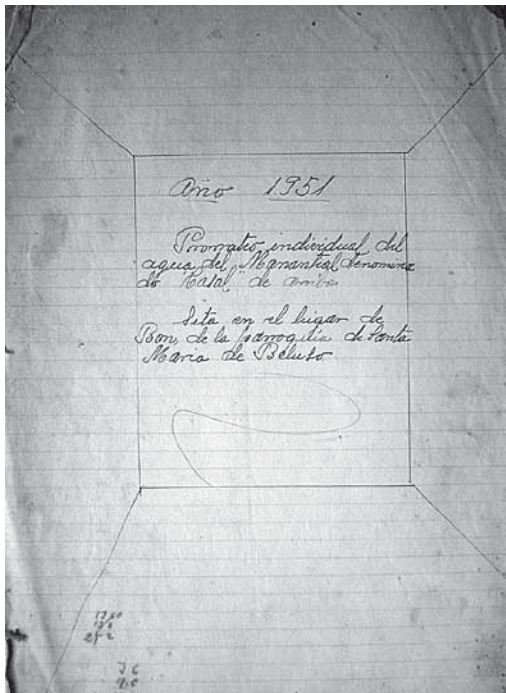 Año 1951
Prorrateo individual del
agua del Manantial denomina
do Casal, de arriba
Sita en el lugar de
Bon, de la parroquia de Santa
Maria de Beluso